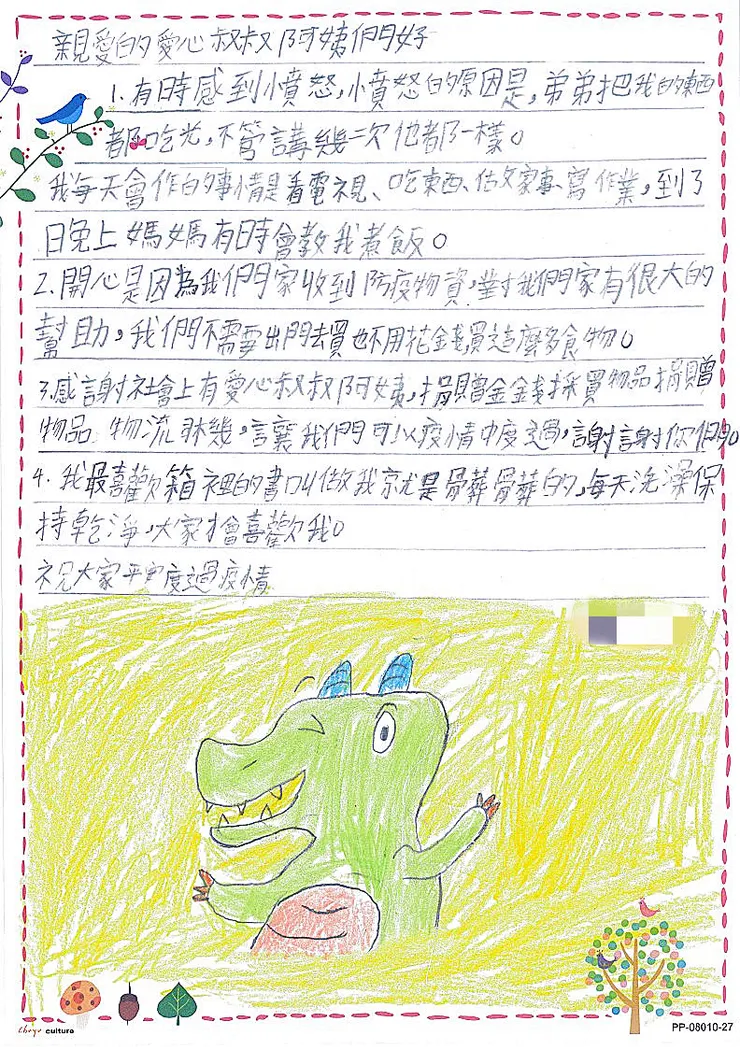 親愛的愛心叔叔阿姨們好
1.有時感到憤怒,憤怒的原因是,弟弟把我的東西
都吃光,不管講幾次他都一樣。
我每天會作的事情是看電視、吃東西、做家事、寫作業,到了
晚上媽媽有時會教我煮飯。
2.開心是因為我們家收到防疫物資,對我們家有很大的
幫助,我們不需要出門去買也不用花金錢買這麼多食物。
3.感謝社會上有愛心叔叔阿姨,捐贈金錢採買物品捐贈
物品 物流 讓我們可以疫情中度過,謝謝你們。
4.我最喜歡箱裡的書叫做我就是髒髒的,每天洗澡保
持乾淨,大家才會喜歡我。
祝大家平安度過疫情
culture
PP-08010-27